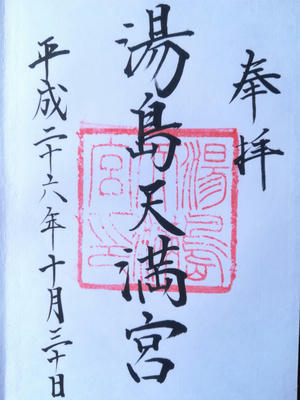 奉拝
湯島天満宮
平成二十六年十月三十日